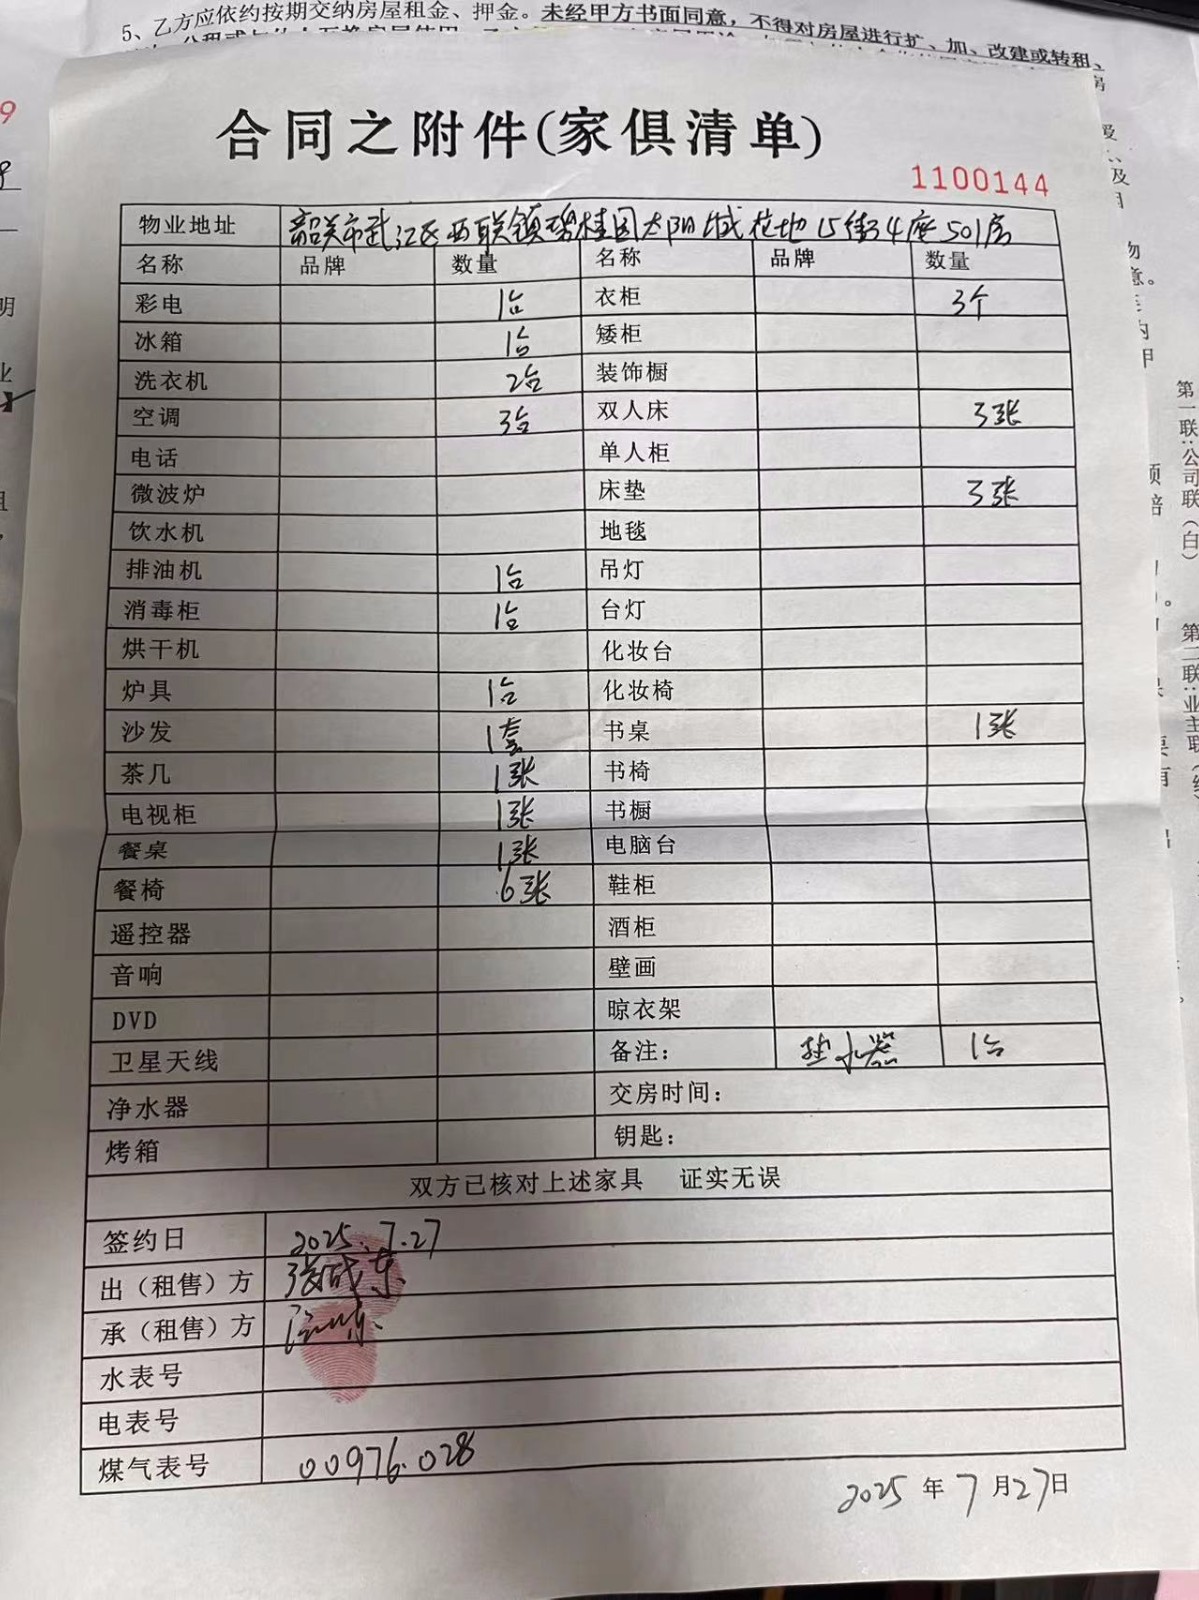 5、乙方应依约按期交纳房屋租金、押金。未经甲方书面同意，不得对房屋进行扩、加、改建或转租、
合同之附件(家俱清单)
1100144
物业地址 韶关市武江区西联镇碧桂园太阳城花地15街4座501房
名称 品牌 数量 名称 品牌 数量
彩电 1台 衣柜 3个
冰箱 1台 矮柜
洗衣机 2台 装饰橱
空调 3台 双人床 3张
电话 单人柜
微波炉 床垫 3张
饮水机 地毯
排油机 1台 吊灯
消毒柜 1台 台灯
烘干机 化妆台
炉具 1台 化妆椅
沙发 1套 书桌 1张
茶几 1张 书椅
电视柜 1张 书橱
餐桌 1张 电脑台
餐椅 6张 鞋柜
遥控器 酒柜
音响 壁画
DVD 晾衣架
卫星天线 备注： 水器 1台
净水器 交房时间：
烤箱 钥匙：
双方已核对上述家具 证实无误
签约日 2025.7.27
出（租售）方 张成东
承（租售）方
水表号
电表号
煤气表号 00976.028
2025 年 7 月 27 日
第一联：公司联（白）
第二联：业主联